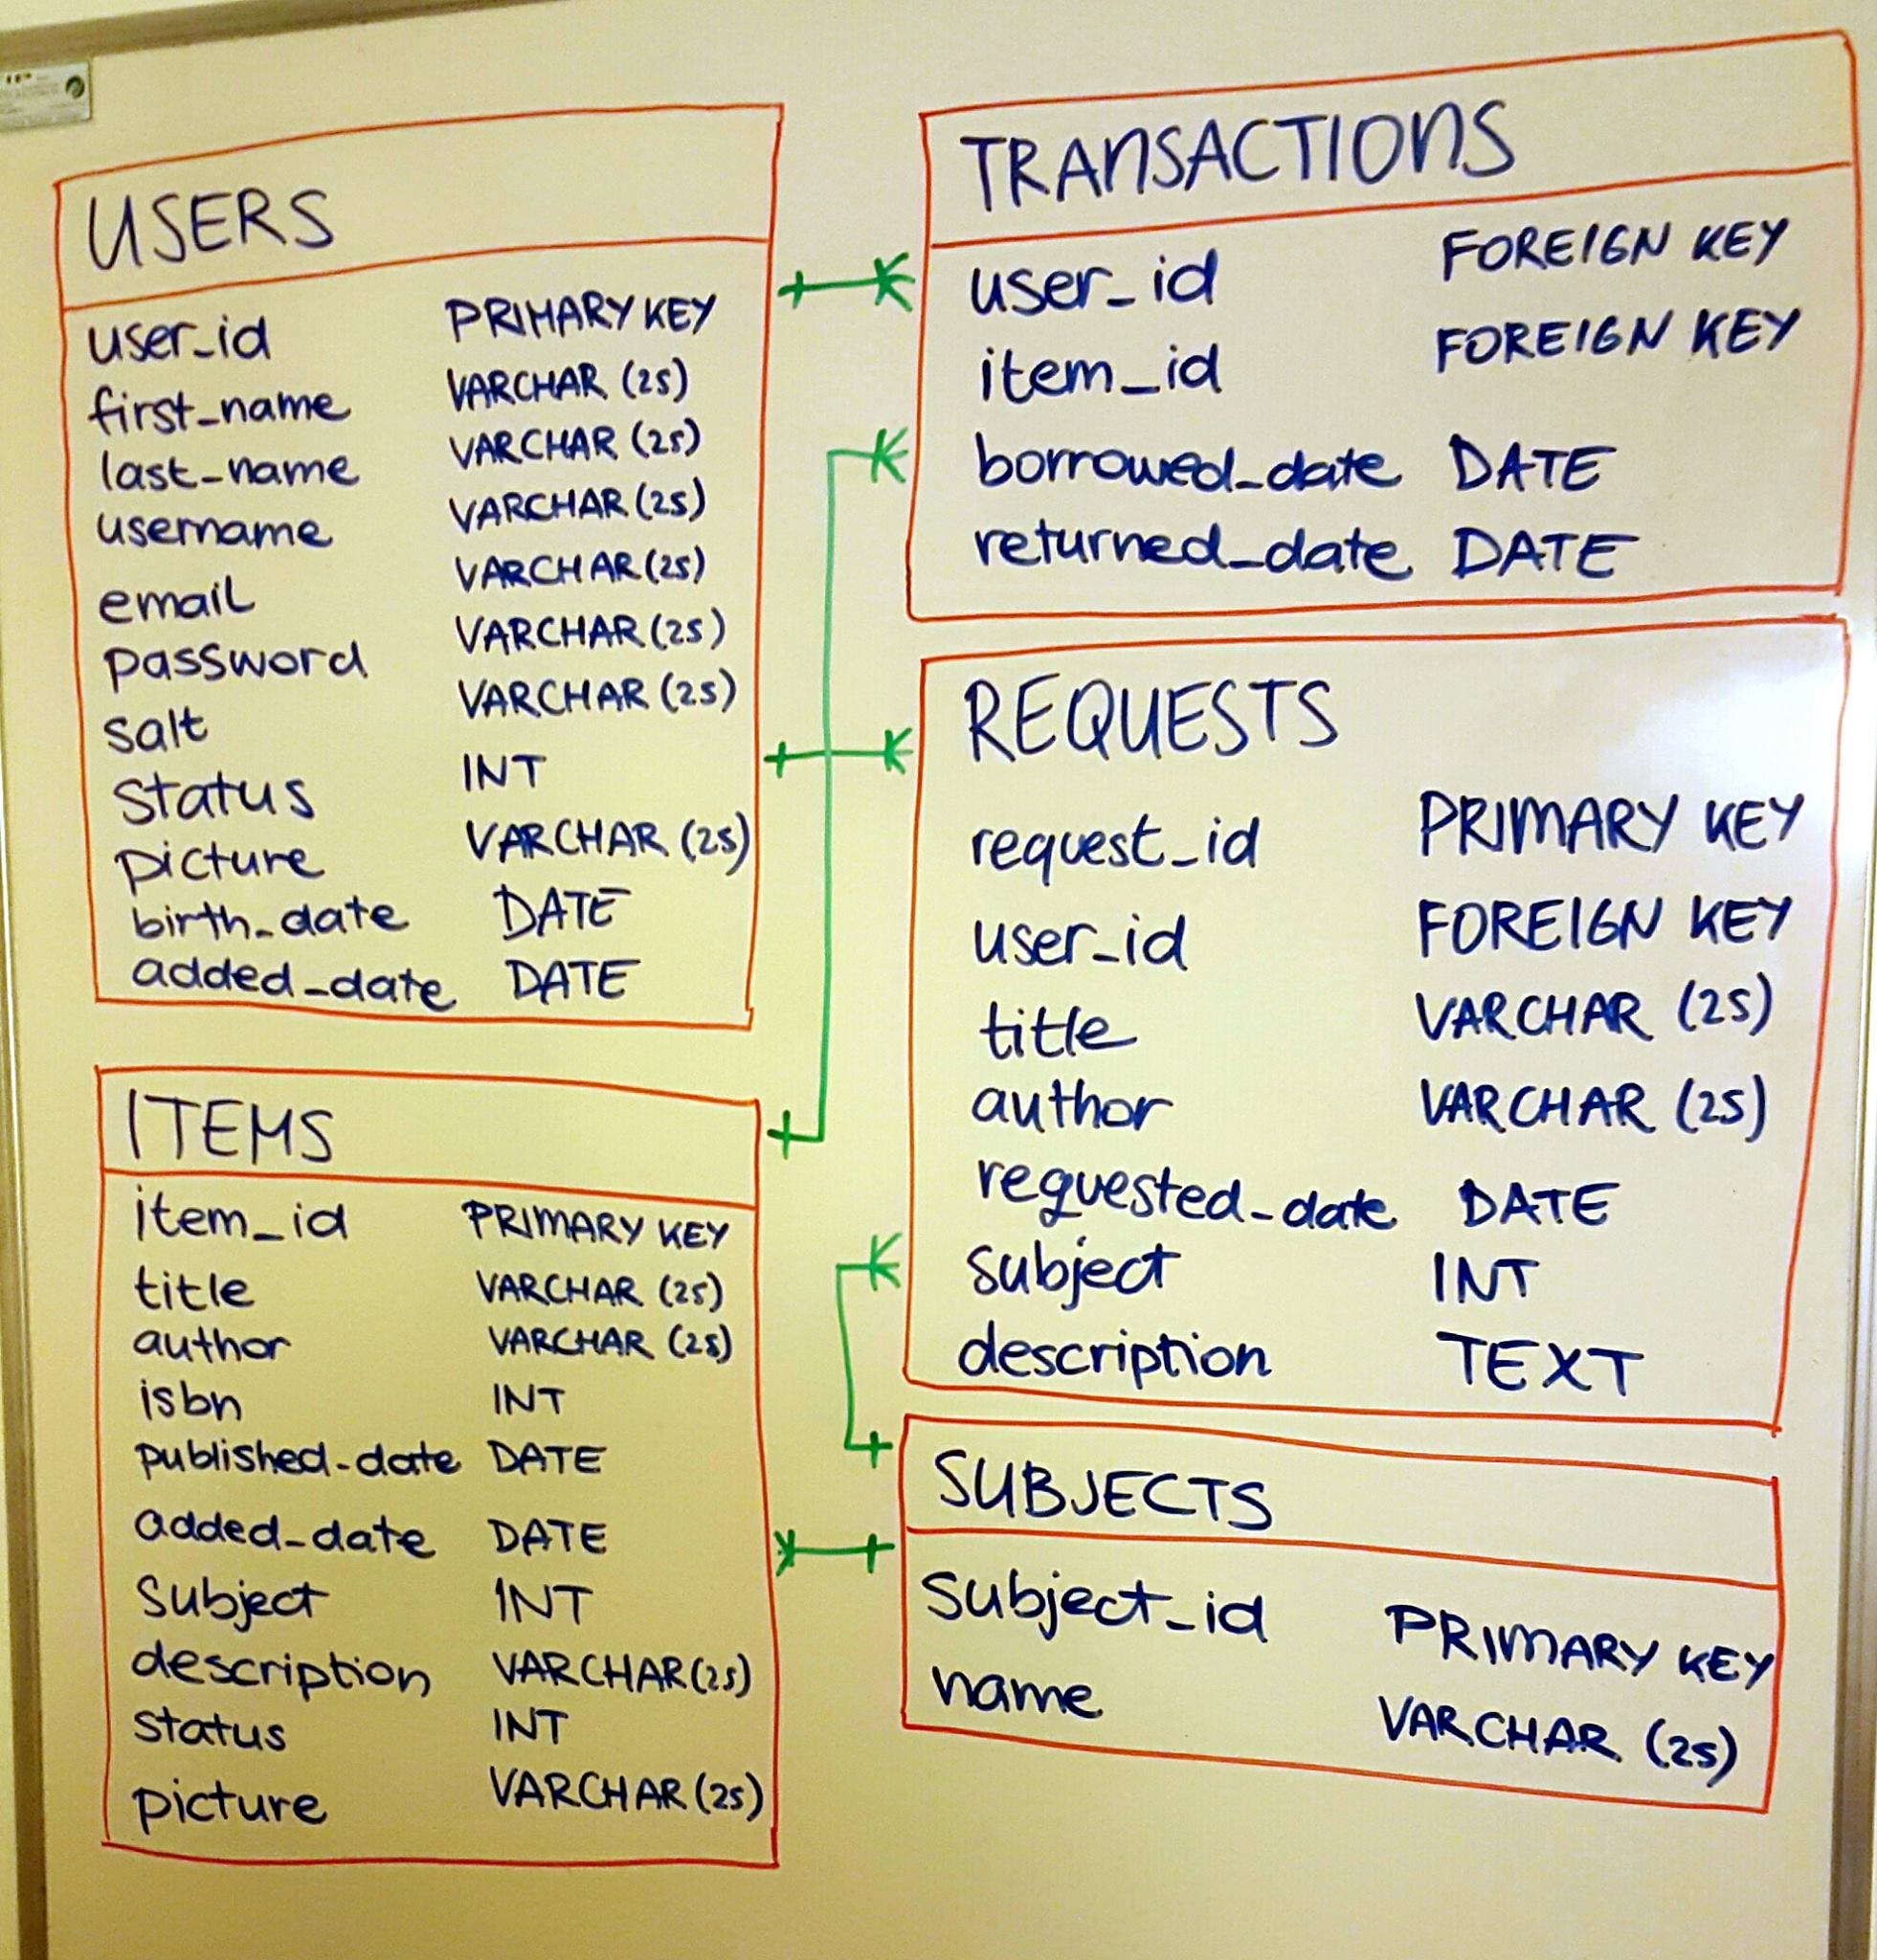 USERS
user_id PRIMARY KEY
first_name VARCHAR (25)
last_name VARCHAR (25)
username VARCHAR (25)
email VARCHAR (25)
password VARCHAR (25)
salt VARCHAR (25)
status INT
picture VARCHAR (25)
birth_date DATE
added_date DATE
ITEMS
item_id PRIMARY KEY
title VARCHAR (25)
author VARCHAR (25)
isbn INT
published_date DATE
added_date DATE
subject INT
description VARCHAR (25)
status INT
picture VARCHAR (25)
TRANSACTIONS
user_id FOREIGN KEY
item_id FOREIGN KEY
borrowed_date DATE
returned_date DATE
REQUESTS
request_id PRIMARY KEY
user_id FOREIGN KEY
title VARCHAR (25)
author VARCHAR (25)
requested_date DATE
subject INT
description TEXT
SUBJECTS
subject_id PRIMARY KEY
name VARCHAR (25)